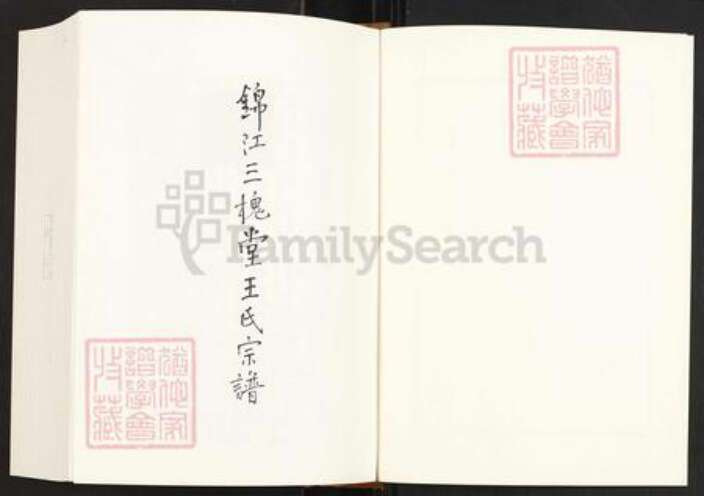 錦江三槐堂王氏宗譜
猶他家
譜學會
收藏
猶他家
譜學會
收藏
FamilySearch